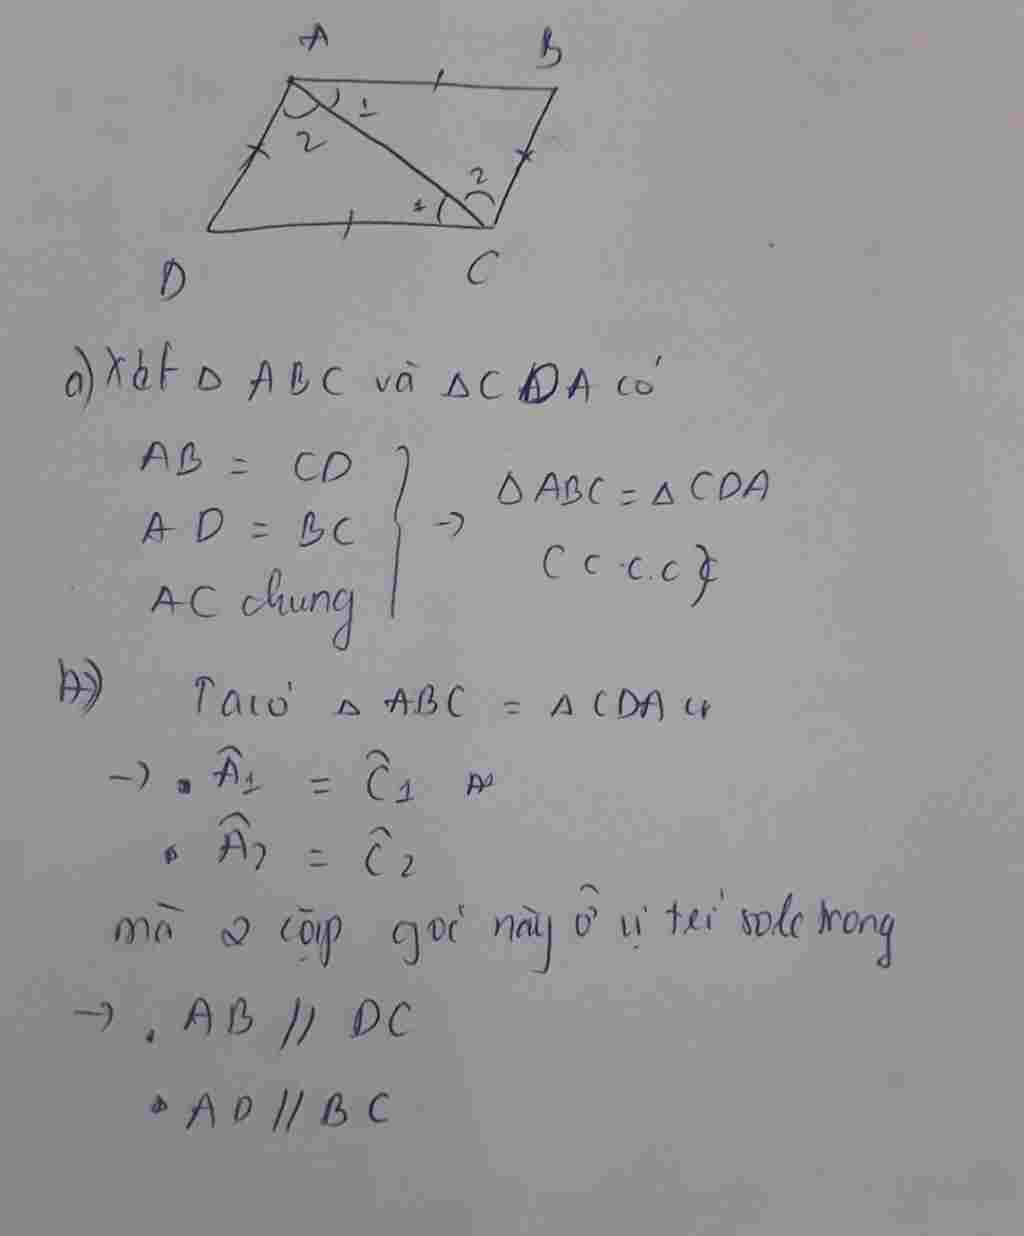 A
B
1
2
2
1
D
C
a) Xét Δ ABC và Δ CDA có
AB = CD
AD = BC
AC chung
→ Δ ABC = Δ CDA
(c.c.c)
Ta có Δ ABC = Δ CDA
→ . Â1 = Ĉ1
. Â2 = Ĉ2
mà 2 cặp góc này ở vị trí sole trong
→ . AB // DC
. AD // BC